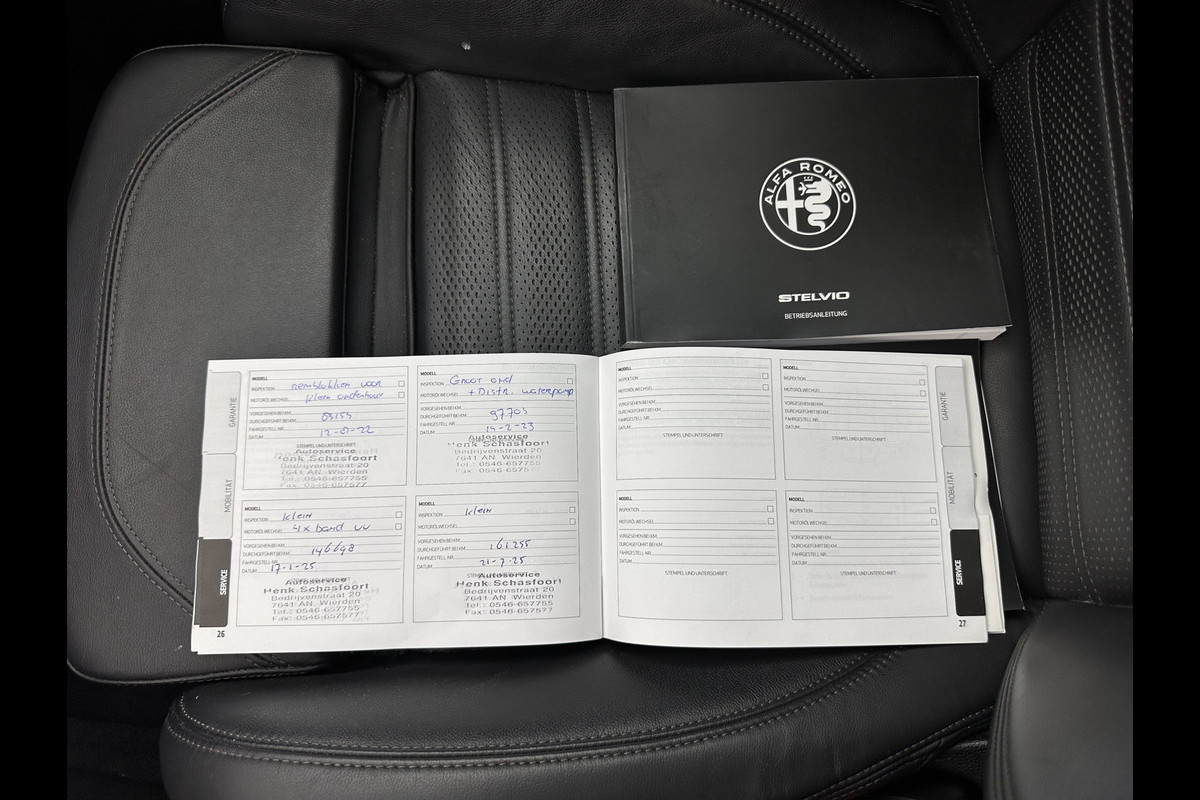 ALFA ROMEO
STELVIO
BETRIEBSANLEITUNG
GARANTIE
MOBILITÄT
SERVICE
MODELL
INSPEKTION remblokken voor
MOTORÖLWECHSEL klein onderhoud
VORGESEHEN BEI KM
DURCHGEFÜHRT BEI KM
FAHRGESTELL NR.
DATUM
STEMPEL UND UNTERSCHRIFT
Autoservice
Henk Schasfoort
Bedrijvenstraat 20
7641 AN Wierden
Tel.: 0546-657755
Fax: 0546-657577
MODELL
INSPEKTION Groot ond
MOTORÖLWECHSEL + Distr. waterpomp
VORGESEHEN BEI KM
DURCHGEFÜHRT BEI KM 97703
FAHRGESTELL NR.
DATUM 14-2-23
Autoservice
Henk Schasfoort
Bedrijvenstraat 20
7641 AN Wierden
Tel.: 0546-657755
Fax: 0546-657577
MODELL
INSPEKTION klein
MOTORÖLWECHSEL 4x band vv
VORGESEHEN BEI KM
DURCHGEFÜHRT BEI KM 146698
FAHRGESTELL NR.
DATUM 17-1-25
Autoservice
Henk Schasfoort
Bedrijvenstraat 20
7641 AN Wierden
Tel.: 0546-657755
Fax: 0546-657577
MODELL
INSPEKTION klein
MOTORÖLWECHSEL
VORGESEHEN BEI KM
DURCHGEFÜHRT BEI KM 161255
FAHRGESTELL NR.
DATUM 21-7-25
Autoservice
Henk Schasfoort
Bedrijvenstraat 20
7641 AN Wierden
Tel.: 0546-657755
Fax: 0546-657577
26
MODELL
INSPEKTION
MOTORÖLWECHSEL
VORGESEHEN BEI KM
DURCHGEFÜHRT BEI KM
FAHRGESTELL NR.
DATUM
STEMPEL UND UNTERSCHRIFT
MODELL
INSPEKTION
MOTORÖLWECHSEL
VORGESEHEN BEI KM
DURCHGEFÜHRT BEI KM
FAHRGESTELL NR.
DATUM
STEMPEL UND UNTERSCHRIFT
MODELL
INSPEKTION
MOTORÖLWECHSEL
VORGESEHEN BEI KM
DURCHGEFÜHRT BEI KM
FAHRGESTELL NR.
DATUM
STEMPEL UND UNTERSCHRIFT
MODELL
INSPEKTION
MOTORÖLWECHSEL
VORGESEHEN BEI KM
DURCHGEFÜHRT BEI KM
FAHRGESTELL NR.
DATUM
STEMPEL UND UNTERSCHRIFT
GARANTIE
MOBILITÄT
SERVICE
27